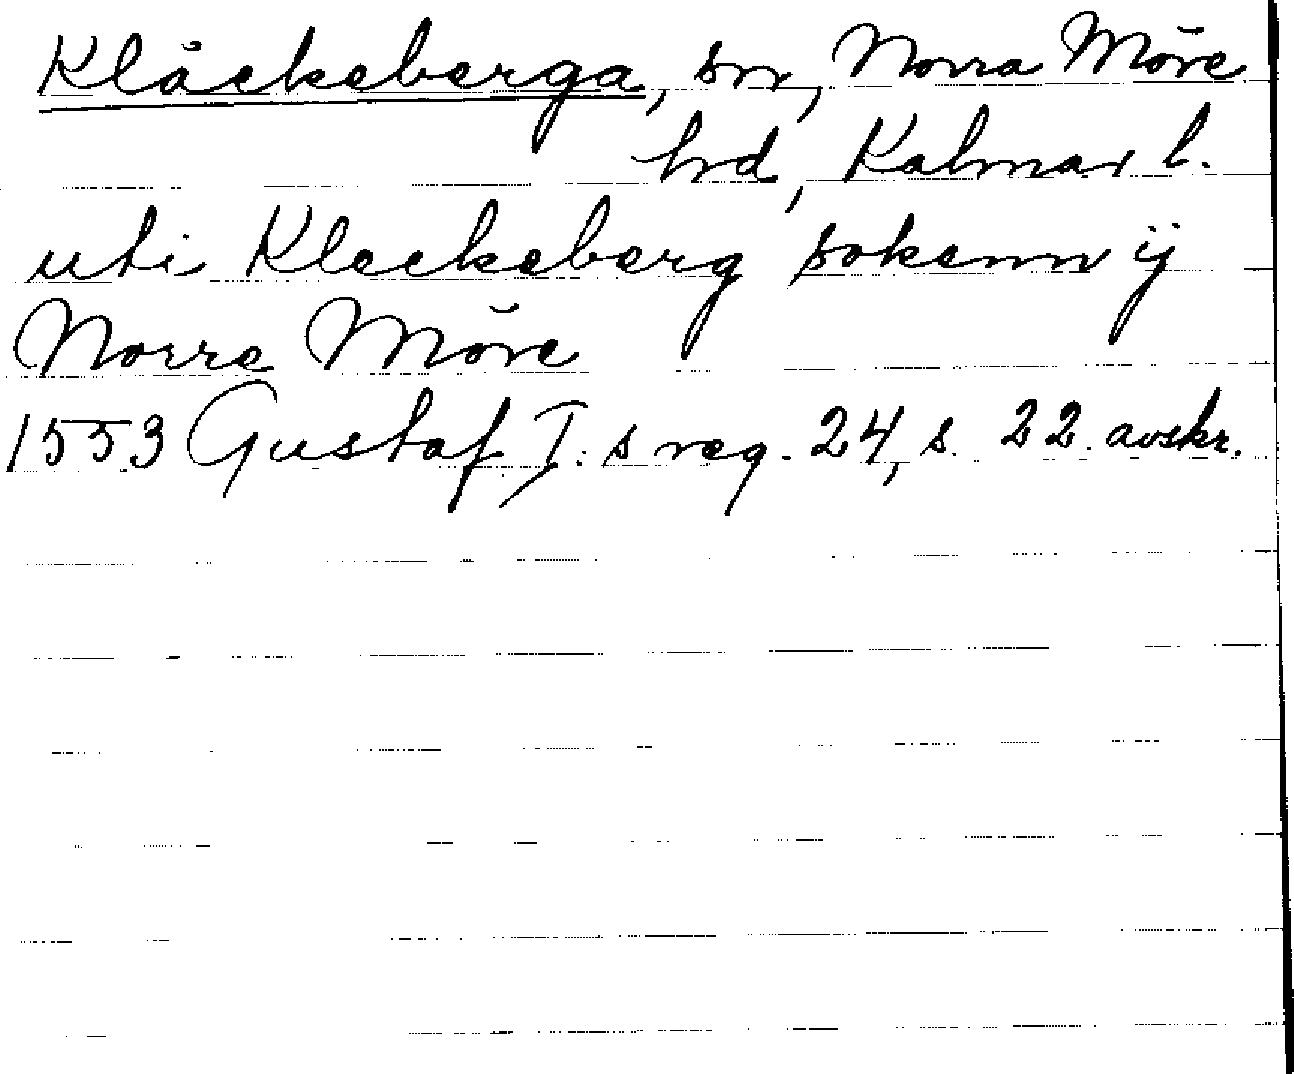 Kläckeberga, sn, Norra Möre
hd, Kalmar l.
uti Kleckeberg sokenn ij
Norre Möre
1553 Gustaf I:s reg. 24, s. 22. avskr.